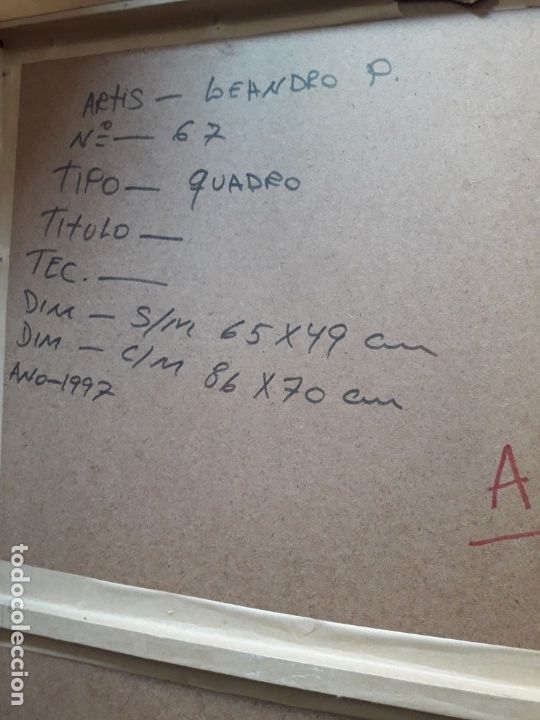 ARTIS — LEANDRO P.
Nº — 67
TIPO — QUADRO
TITULO —
TEC. —
DIM — S/M 65 X 49 cm
DIM — C/M 86 X 70 cm
ANO-1997
A
todocoleccion